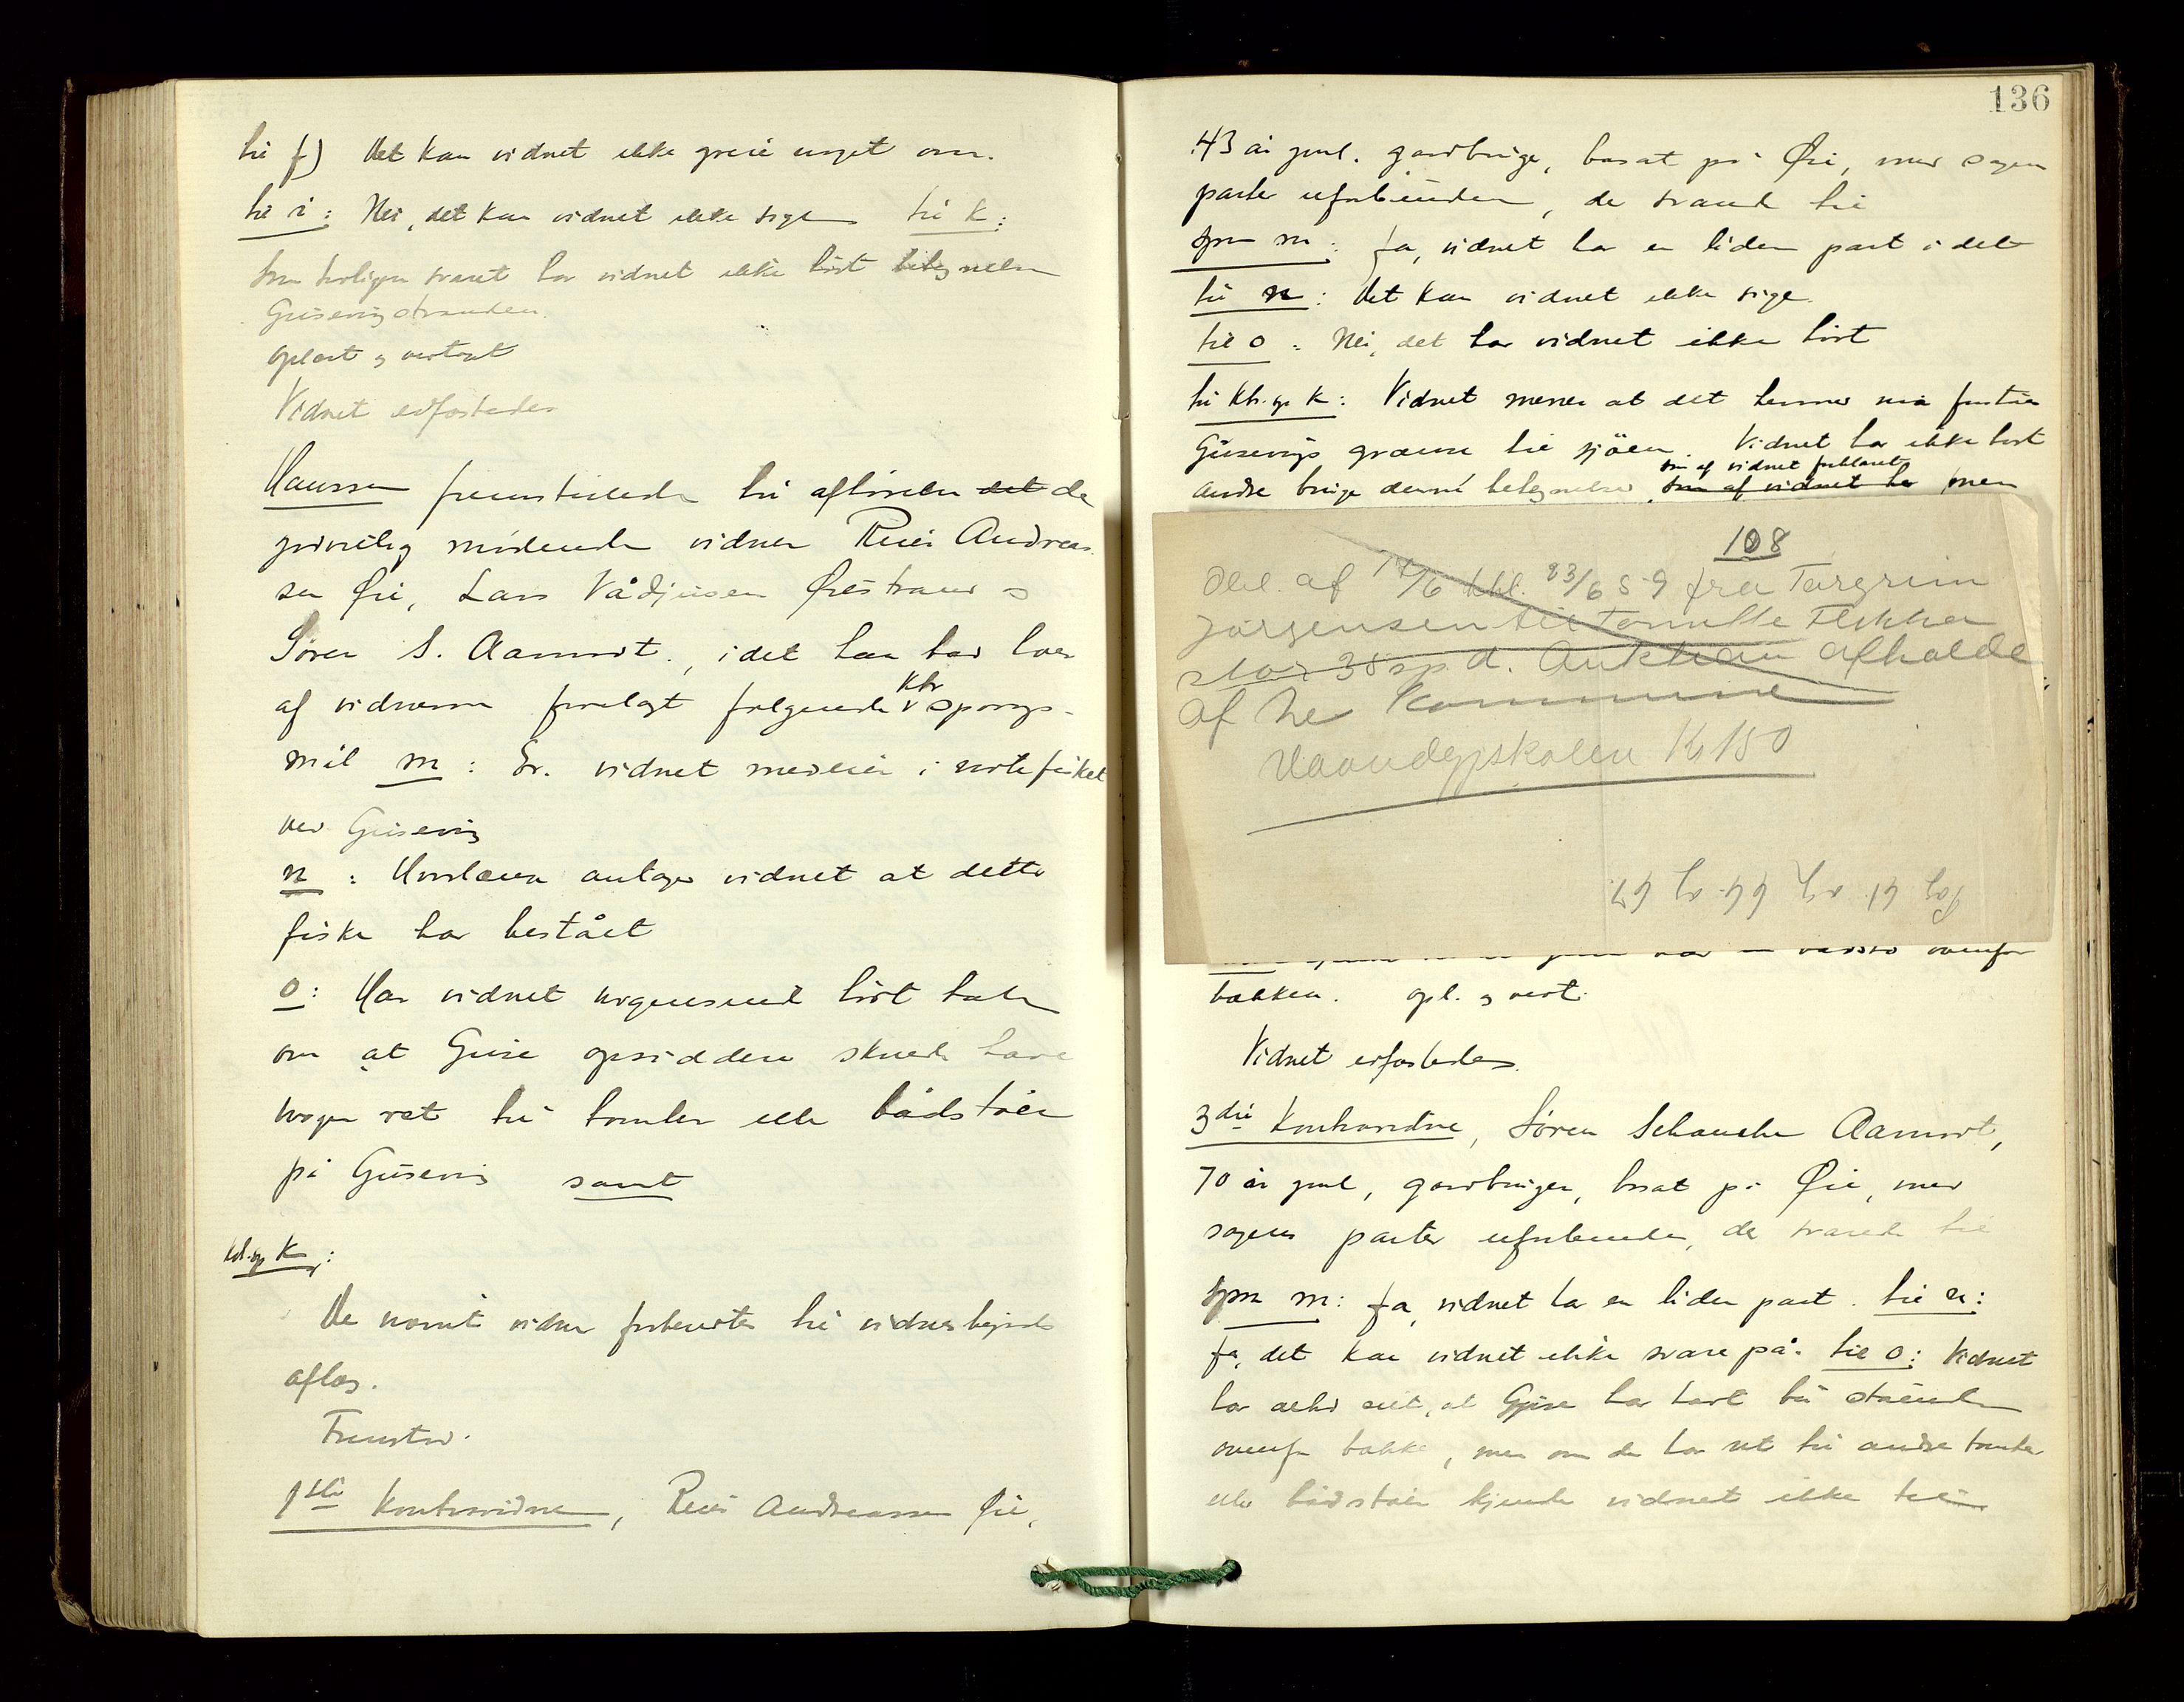 til f) Det kan vidnet ikke greie noget om.
til i: Nei, det kan vidnet ikke sige til k:
Som tidligere svaret har vidnet ikke hørt betegnelsen
Gusevigstranden.
Oplæst og vedtat
Vidnet edfæstedes
Hanssen fremstillede til afhørelse det de
godvillig mødende vidner Reier Andreas-
sen Øie, Lars Vådjusen Øiestrand og
Søren S. Aamodt, idet han bad hver
af vidnerne forelagt følgende Ktr spørgs-
mål m: Er vidnet medeier i notefisket
ved Gusevig
n: Hvorlænge antager vidnet at dette
fiske har bestået
o: Har vidnet nogensinde hørt tale
om at Guse opsiddere skulde have
nogen ret til tomter eller bådstøer
på Gusevig samt
ktr. sp K:
De nævnte vidner forberedtes til vidnesbyrds
aflæg.
Fremstod.
1ste Kontravidne, Reier Andreassen Øie,
136
43 år gml. gårdbruger, bosat på Øie, med sagens
parter uforbunden, der svarede til
Spm m: Ja, vidnet har en liden part i det
til n: Det kan vidnet ikke sige.
til o: Nei, det har vidnet ikke hørt
til Ktr. sp K: Vidnet mener at det hermed må forståes
Gusevigs grænse til sjøen. Vidnet har ikke hørt
som af vidnet forklaret
andre bruge denne betegnelse, som af vidnet her men
108
Obl. af 14/6 thl. 23/6 59 fra Targrim
Jørgensen til Tønulle Flikka
stor 38 sp d. Auktion afholdt
af He Kommune
Vaandejskolen K 150
Tog 61 og 64 og 67.
ovenfor
bakken. Opl. og vedt.
Vidnet edfæstedes.
3die Kontravidne, Søren Schanche Aamodt,
70 år gml, gårdbruger, bosat på Øie, med
sagens parter uforbunden, der svarede til
Spm m: Ja, vidnet har en liden part. til n:
Ja, det kan vidnet ikke svare på. til o: Vidnet
har altid vidst, at Gjuse har havt til støende
ovenfor bakke, men om de har ret til andre tomter
eller bådstøer kjende vidnet ikke til